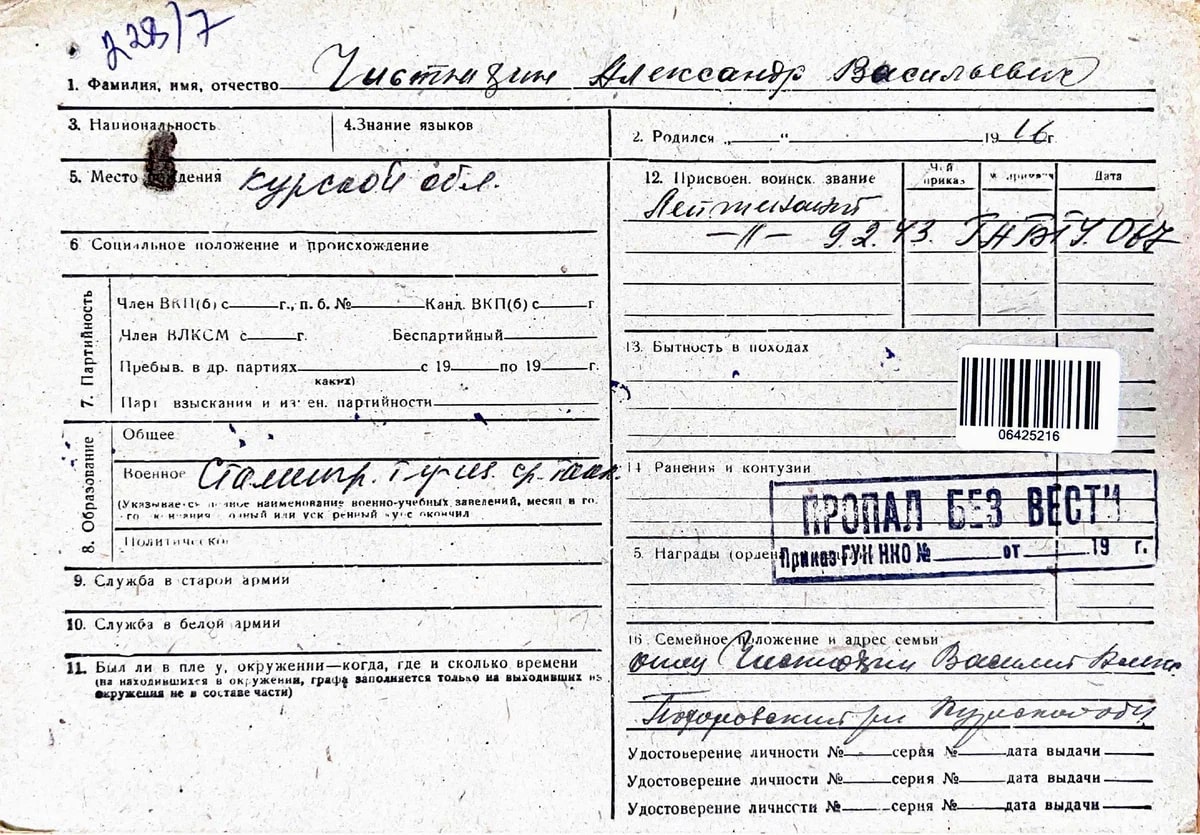 228/7
1. Фамилия, имя, отчество Александр Васильевич
3. Национальность
4.Знание языков
2. Родился „ " 1916г.
5. Место рождения Курской обл.
12. Присвоен. воинск. звание
Чей приказ
№ приказа
Дата
Лейтенант
—"— 9.2.43.
6 Социальное положение и происхождение
7. Партийность
Член ВКП(б) с г., п. б. № Канд. ВКП(б) с г.
Член ВЛКСМ с г. Беспартийный
Пребыв. в др. партиях с 19 по 19 г.
каких)
Парт взыскания и измен. партийности
13. Бытность в походах
06425216
8. Образование
Общее
Военное Сталингр. ср. танк.
(Указывается полное наименование военно-учебных заведений, месяц и го-
Политическое
14 Ранения и контузии
ПРОПАЛ БЕЗ ВЕСТИ
Приказ ГУК НКО № от 19 г.
5. Награды (ордена
9. Служба в старой армии
10. Служба в белой армии
11. Был ли в плену, окружении—когда, где и сколько времени
(на находившихся в окружении, графа заполняется только на выходивших из
окружения не в составе части)
16. Семейное положение и адрес семьи
отец Василий
Курской обл.
Удостоверение личности № серия № дата выдачи
Удостоверение личности № серия № дата выдачи
Удостоверение личности № серия № дата выдачи